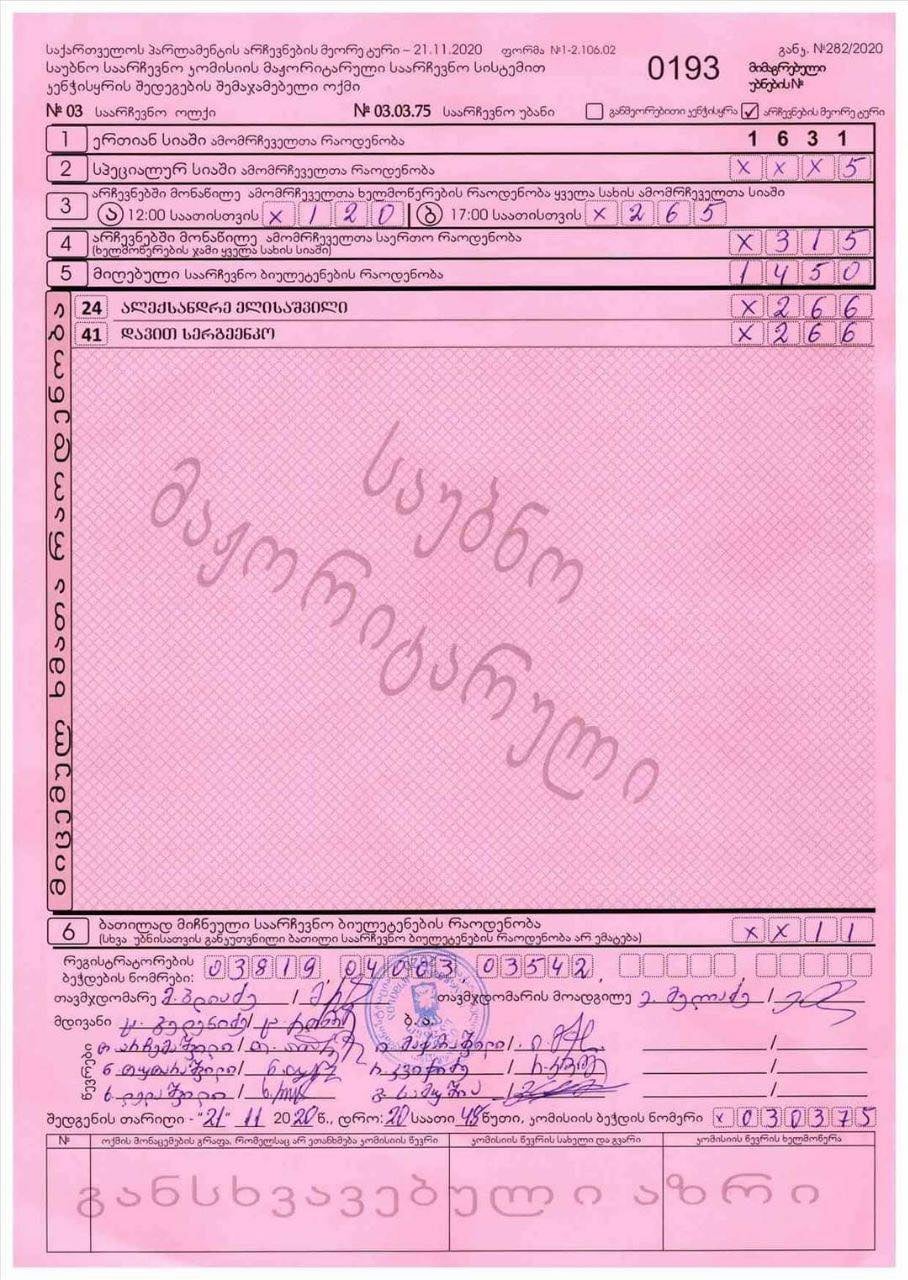 საქართველოს პარლამენტის არჩევნების მეორე ტური – 21.11.2020 ფორმა №1-2.106.02 განკ. №282/2020
საუბნო საარჩევნო კომისიის მაჟორიტარული საარჩევნო სისტემით
კენჭისყრის შედეგების შემაჯამებელი ოქმი
0193
მიმაგრებული
უბნების №
№ 03 საარჩევნო ოლქი № 03.03.75 საარჩევნო უბანი განმეორებითი კენჭისყრა ✓ არჩევნების მეორე ტური
1 ერთიან სიაში ამომრჩეველთა რაოდენობა 1 6 3 1
2 სპეციალურ სიაში ამომრჩეველთა რაოდენობა X X X 5
3 არჩევნებში მონაწილე ამომრჩეველთა ხელმოწერების რაოდენობა ყველა სახის ამომრჩეველთა სიაში
ა 12:00 საათისთვის X 1 2 0 ბ 17:00 საათისთვის X 2 6 5
4 არჩევნებში მონაწილე ამომრჩეველთა საერთო რაოდენობა X 3 1 5
(ხელმოწერების ჯამი ყველა სახის სიაში)
5 მიღებული საარჩევნო ბიულეტენების რაოდენობა 1 4 5 0
მიცემულ ხმათა რაოდენობა
24 ალექსანდრე ელისაშვილი X 2 6 6
41 დავით სერგეენკო X 2 6 6
საუბნო
მაჟორიტარული
6 ბათილად მიჩნეული საარჩევნო ბიულეტენების რაოდენობა X X 1 1
(სხვა უბნისათვის განკუთვნილი ბათილი საარჩევნო ბიულეტენების რაოდენობა არ ემატება)
რეგისტრატორების
ბეჭდების ნომრები: 03819, 04003, 03542,
თავმჯდომარე თავმჯდომარის მოადგილე
მდივანი ბ.ა.
წევრები
შედგენის თარიღი - "21" 11 2020 წ., დრო: 20 საათი 48 წუთი, კომისიის ბეჭდის ნომერი X 0 3 0 3 7 5
№ ოქმის მონაცემების გრაფა, რომელსაც არ ეთანხმება კომისიის წევრი კომისიის წევრის სახელი და გვარი კომისიის წევრის ხელმოწერა
განსხვავებული აზრი